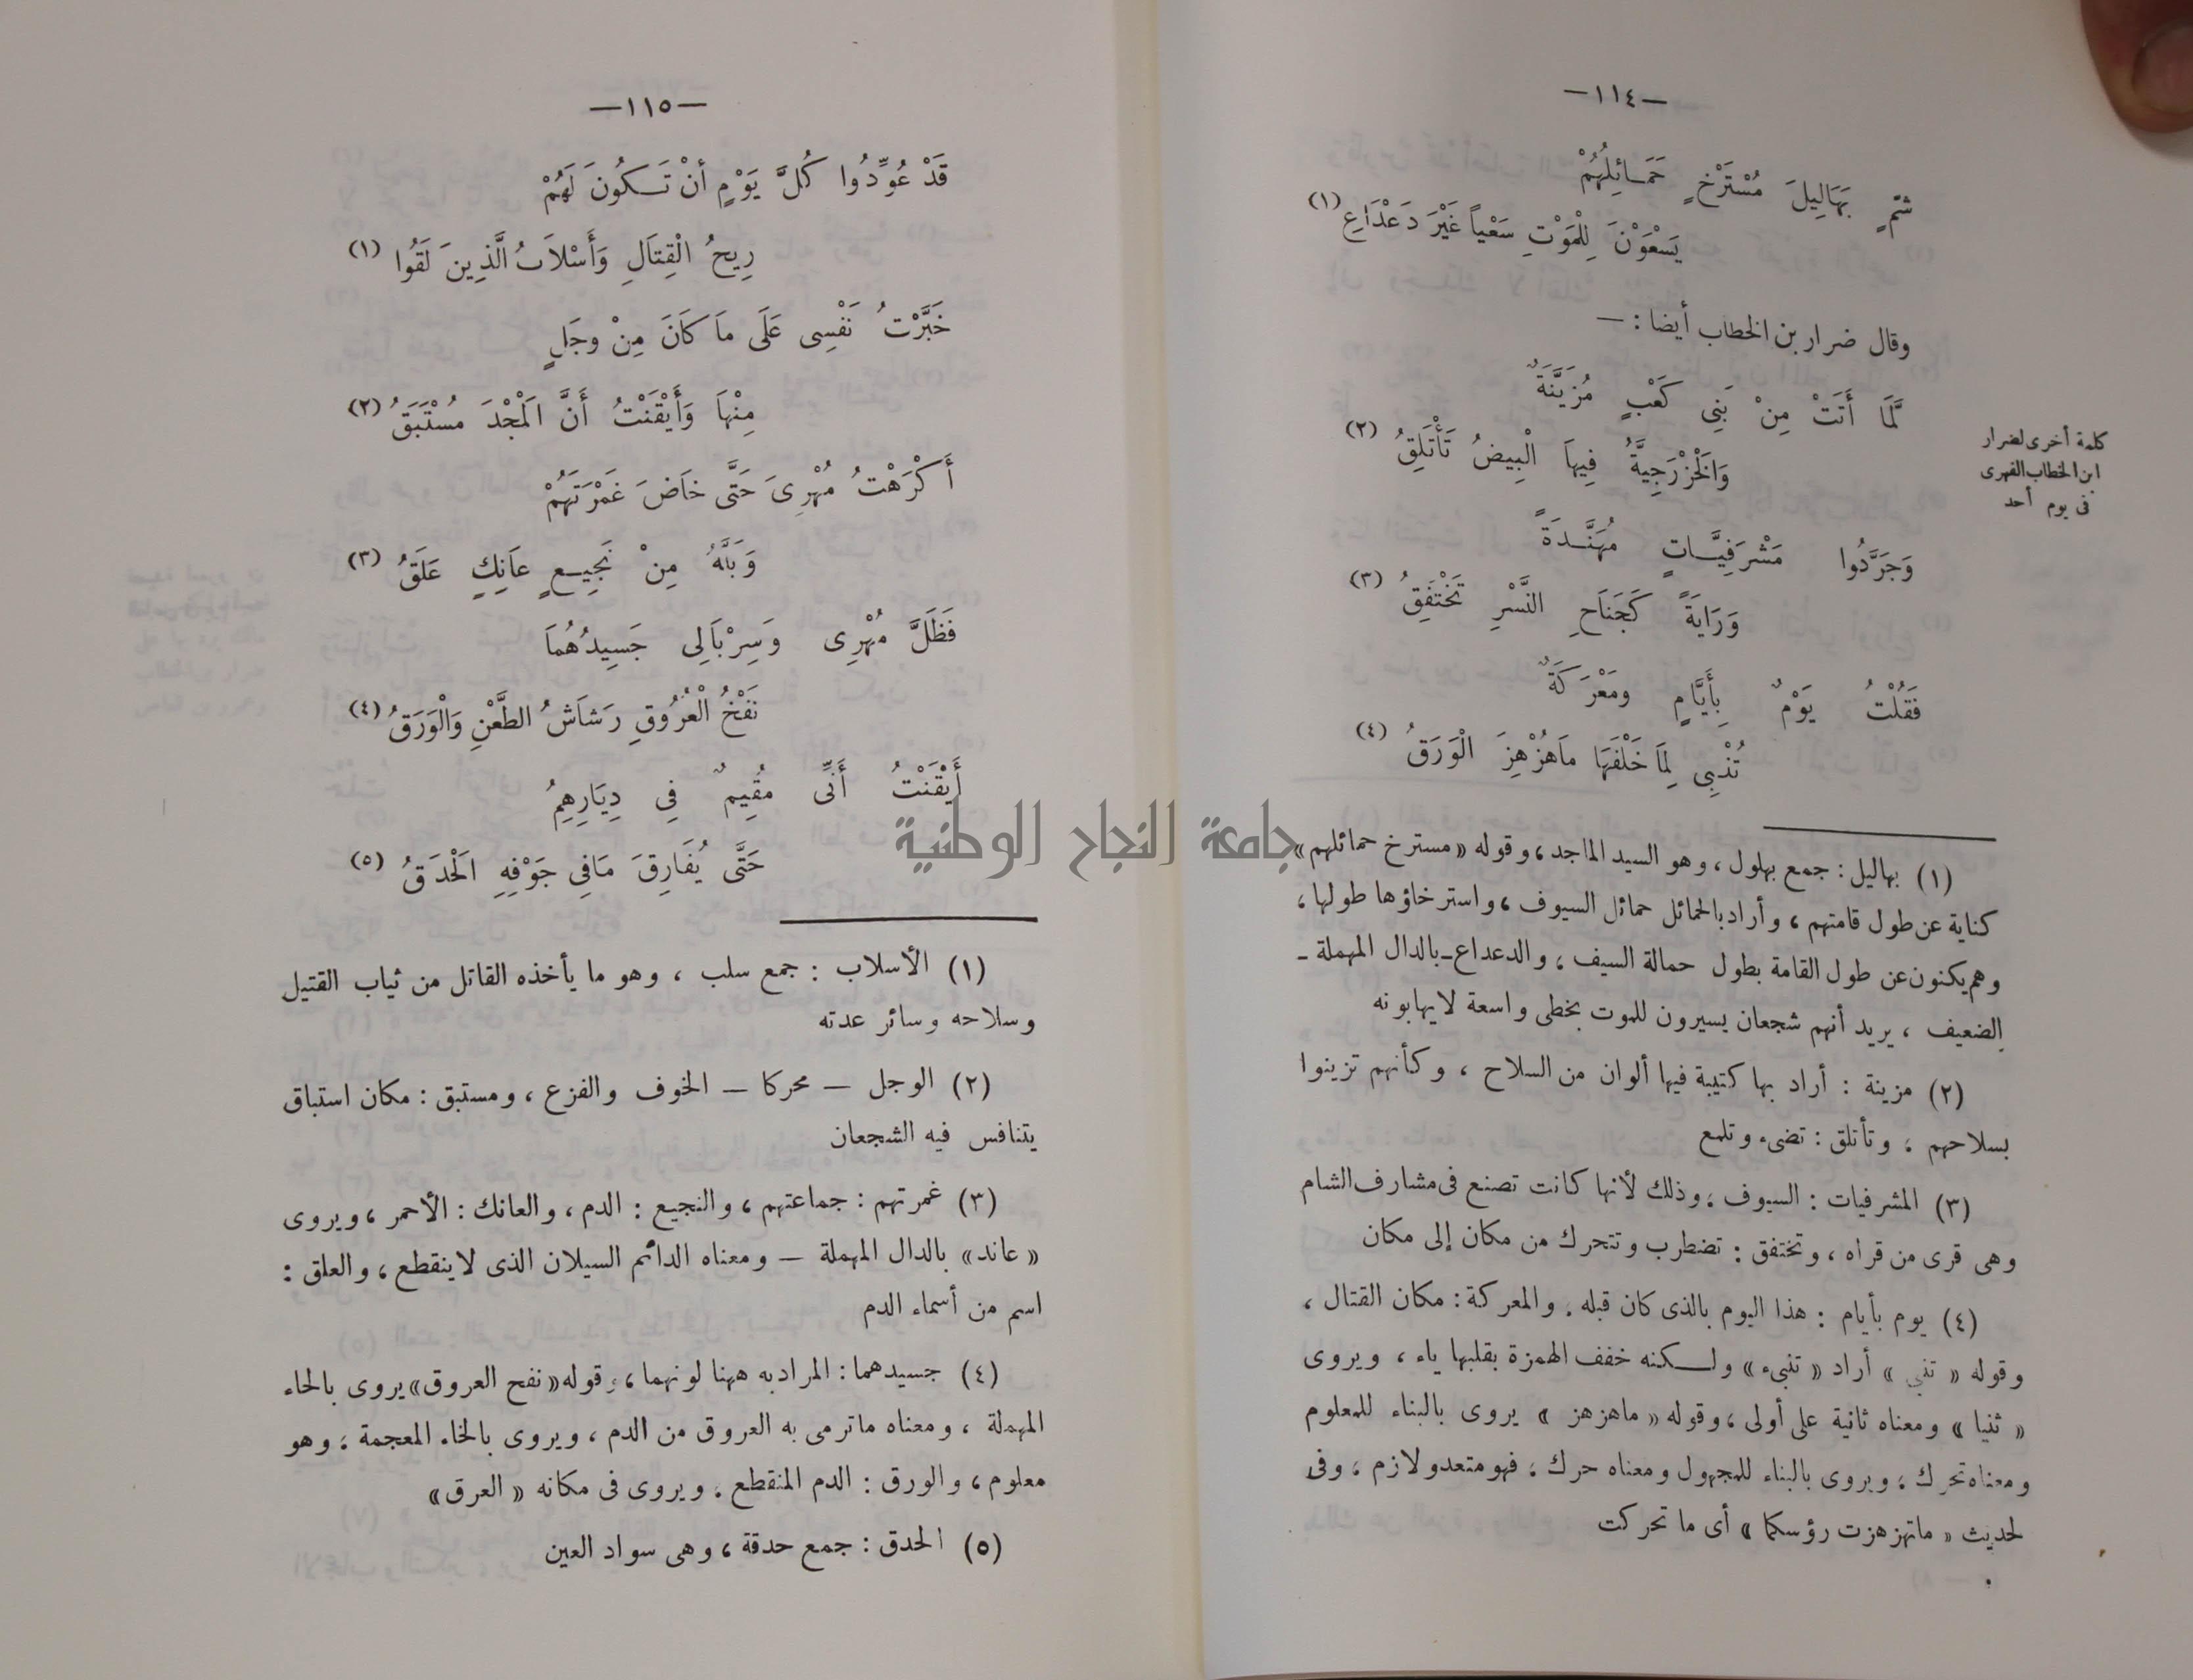 —١١٤—
شُمٍّ بَهَالِيلَ مُسْتَرْخٍ حَمَـائِلُهُمْ
يَسْعَوْنَ لِلْمَوْتِ سَعْياً غَيْرَ دَعْدَاعِ (١)
وقال ضرار بن الخطاب أيضا : —
كلمة أخرى لضرار
ابن الخطاب الفهرى
فى يوم أحد
لَمَّا أَتَتْ مِنْ بَنِى كَعْبٍ مُزَيَّنَةٌ
وَالْخَزْرَجِيَّةُ فِيهاَ الْبِيضُ تَأْتَلِقُ (٢)
وَجَرَّدُوا مَشْرَفِيَّـاتٍ مُهَنَّـدَةً
وَرَايَةً كَجَنَاحِ النَّسْرِ تَخْتَفِقُ (٣)
فَقُلْتُ يَوْمٌ بِأَيَّامٍ ومَعْرَكَةٌ
تُنْبِى لِمَا خَلْفَهَا مَاهُزْهِزَ الْوَرَقُ (٤)
(١) بهاليل : جمع بهلول ، وهو السيد الماجد ، وقوله « مسترخ حمائلهم »
كناية عن طول قامتهم ، وأراد بالحمائل حمائل السيوف ، واسترخاؤها طولها ،
وهم يكنون عن طول القامة بطول حمالة السيف ، والدعداع ـ بالدال المهملة ـ
الضعيف ، يريد أنهم شجعان يسيرون للموت بخطى واسعة لايهابونه
(٢) مزينة : أراد بها كتيبة فيها ألوان من السلاح ، وكأنهم تزينوا
بسلاحهم ، وتأتلق : تضىء وتلمع
(٣) المشرفيات : السيوف ، وذلك لأنها كانت تصنع فى مشارف الشام
وهى قرى من قراه ، وتختفق : تضطرب وتتحرك من مكان إلى مكان
(٤) يوم بأيام : هذا اليوم بالذى كان قبله . والمعركة : مكان القتال ،
وقوله « تنبى » أراد « تنبىء » ولـكنه خفف الهمزة بقلبها ياء ، ويروى
« ثنيا » ومعناه ثانية على أولى ، وقوله « ماهزهز » يروى بالبناء للمعلوم
ومعناه تحرك ، ويروى بالبناء للمجهول ومعناه حرك ، فهو متعد ولازم ، وفى
لحديث « ماتهزهزت رؤسكما » أى ما تحركت
—١١٥—
قَدْ عُوِّدُوا كُلَّ يَوْمٍ أنْ تَـكُونَ لَهُمْ
رِيحُ الْقِتَالِ وَأَسْلاَبُ الَّذِينَ لَقُوا (١)
خَبَّرْتُ نَفْسِى عَلَى مَا كَانَ مِنْ وجَلٍ
مِنْهاَ وَأَيْقَنْتُ أَنَّ الَمْجْدَ مُسْتَبَقُ (٢)
أَكْرَهْتُ مُهْرِىَ حَتَّى خاَضَ غَمْرَتَهُمْ
وَبَلَّهُ مِنْ نَجِيـعٍ عَانِكٍ عَلَقُ (٣)
فَظَلَّ مُهْرِى وَسِرْبَالِى جَسِيدُهُمَا
نَفْخُ الْعُرُوقِ رَشَاشُ الطَّعْنِ وَالْوَرَقُ (٤)
أَيْقَنْتُ أَنِّى مُقِيمٌ فِى دِيَارِهِمُ
حَتَّى يُفَارِقَ مَافِى جَوْفِهِ الَحْدَقُ (٥)
(١) الأسلاب : جمع سلب ، وهو ما يأخذه القاتل من ثياب القتيل
وسلاحه وسائر عدته
(٢) الوجل — محركا — الخوف والفزع ، ومستبق : مكان استباق
يتنافس فيه الشجعان
(٣) غمرتهم : جماعتهم ، والنجيع : الدم ، والعانك : الأحمر ، ويروى
« عاند » بالدال المهملة — ومعناه الدائم السيلان الذى لاينقطع ، والعلق :
اسم من أسماء الدم
(٤) جسيدهما : المراد به ههنا لونهما ، وقوله « نفح العروق » يروى بالحاء
المهملة ، ومعناه ماترمى به العروق من الدم ، ويروى بالخاء المعجمة ، وهو
معلوم ، والورق : الدم المنقطع . ويروى فى مكانه « العرق »
(٥) الحدق : جمع حدقة ، وهى سواد العين
جامعة النجاح الوطنية